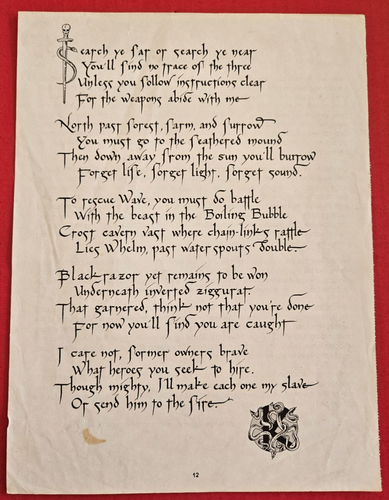 Search ye far or search ye near
You'll find no trace of the three
Unless you follow instructions clear
For the weapons abide with me
North past forest, farm, and furrow
You must go to the feathered mound
Then down away from the sun you'll burrow
Forget life, forget light, forget sound.
To rescue Wave, you must do battle
With the beast in the Boiling Bubble
Crost cavern vast where chain-links rattle
Lies Whelm, past waterspouts double.
Blackrazor yet remains to be won
Underneath inverted ziggurat.
That garnered, think not that you're done
For now you'll find you are caught
I care not, former owners brave
What heroes you seek to hire.
Though mighty, I'll make each one my slave
Or send him to the fire.
12